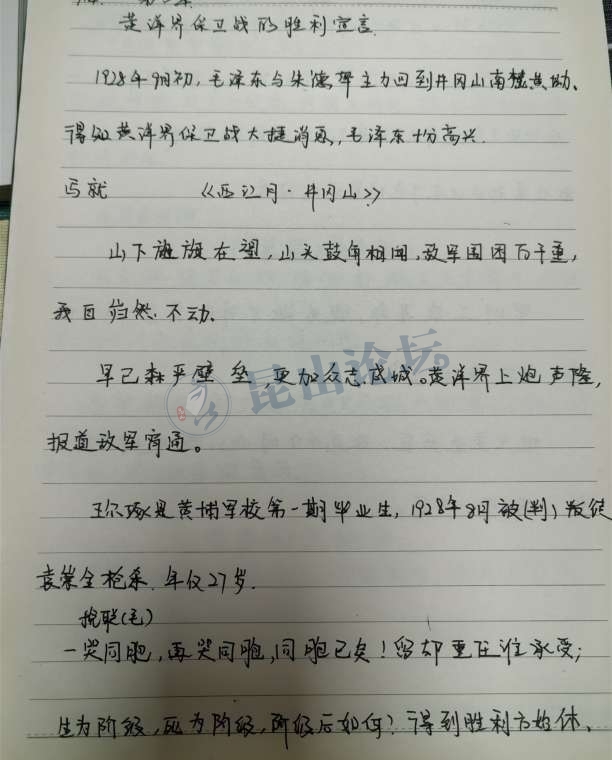 黄洋界保卫战的胜利宣言.
1928年9月初,毛泽东与朱德率主力回到井冈山南
得知黄洋界保卫战大捷消息,毛泽东十分高兴.
写就 《西江月·井冈山》
山下旌旗在望,山头鼓角相闻,敌军围困万千重,
我自岿然不动.
早已森严壁垒,更加众志成城。黄洋界上炮声隆,
报道敌军宵遁。
昆山论坛
王尔琢是黄埔军校第一期毕业生,1928年8月被(判)叛徒
袁崇全枪杀.年仅27岁.
挽联(毛)
一哭同胞,再哭同胞,同胞已矣!留却重任谁承受;
生为阶级,死为阶级,阶级后如何?得到胜利方始休.